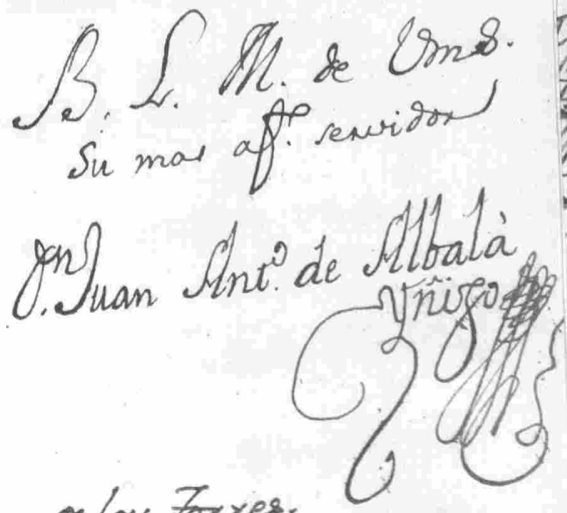 B. L. M. de Vms.
Su mas aff.º servidor
Juan Ant.º de Albalà
Yñigo
Torres.